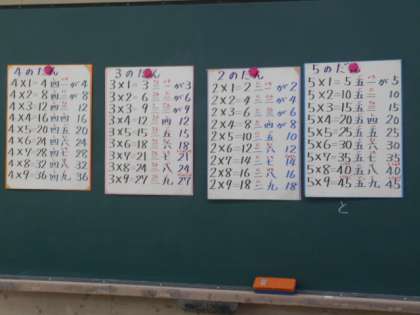 4のだん
4×1=4 四一が4
4×2=8 四二が8
4×3=12 四三 12
4×4=16 四四 16
4×5=20 四五 20
4×6=24 四六 24
4×7=28 四七 28
4×8=32 四八 32
4×9=36 四九 36
3のだん
3×1=3 三一が3
3×2=6 三二が6
3×3=9 三三が9
3×4=12 三四 12
3×5=15 三五 15
3×6=18 三六 18
3×7=21 三七 21
3×8=24 三八 24
3×9=27 三九 27
2のだん
2×1=2 二一が2
2×2=4 二二が4
2×3=6 二三が6
2×4=8 二四が8
2×5=10 二五 10
2×6=12 二六 12
2×7=14 二七 14
2×8=16 二八 16
2×9=18 二九 18
5のだん
5×1=5 五一が5
5×2=10 五二 10
5×3=15 五三 15
5×4=20 五四 20
5×5=25 五五 25
5×6=30 五六 30
5×7=35 五七 35
5×8=40 五八 40
5×9=45 五九 45
と